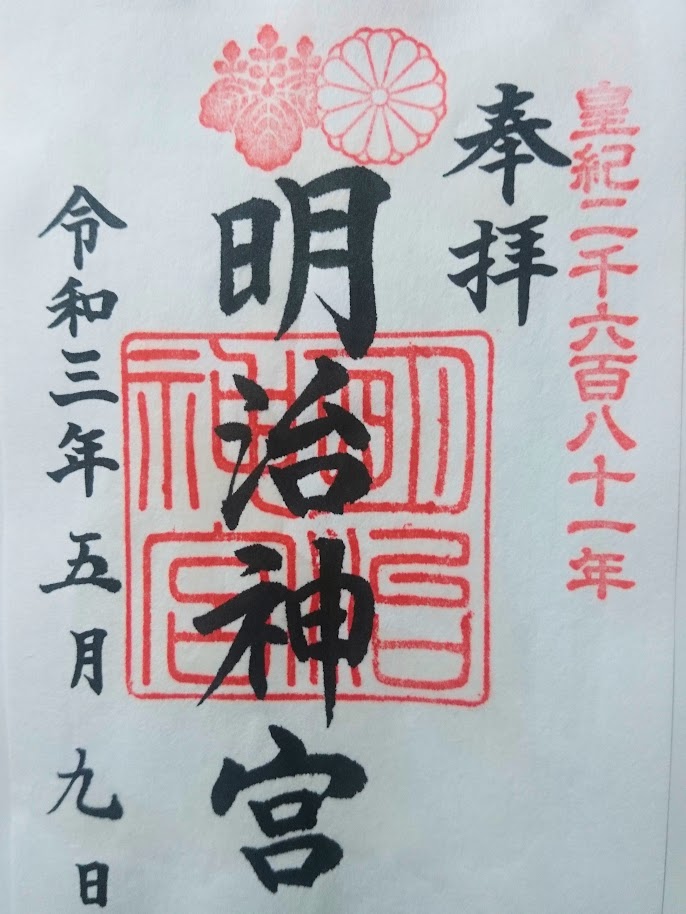 皇紀二千六百八十一年
奉拝
明治神宮
明治神宮
令和三年五月九日